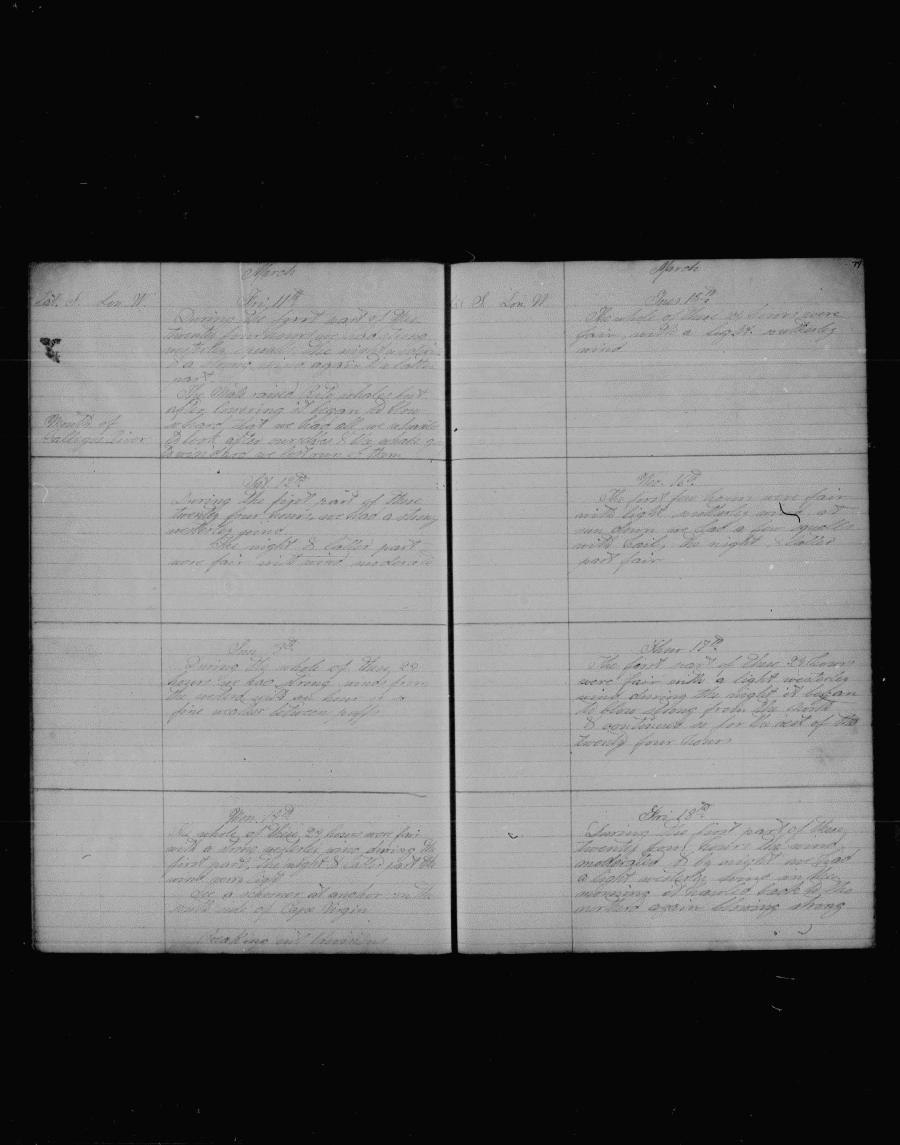 March
Lat. S. Lon. W.
Fri. 11th
During the first part of these
twenty four hours we had strong
westerly
a strong wind again the latter
part
The Mate raised whales but
after lowering it began to blow
so hard that we had all we
to look after ourselves & the whales
to windward we lost run of them
Mouth of
Gallegos River
Sat. 12th
During the first part of these
twenty four hours we had a strong
westerly wind
The night & latter part
were fair with wind moderate
Sun. 13th
During the whole of these 24
hours we had strong winds from
the
fine weather between puffs
Mon. 14th
The whole of these 24 hours were fair
with a strong westerly wind during the
first part, the night & latter part the
wind were light
See a schooner at anchor on the
north side of Cape Virgin
Breaking out
March
Lat. S. Lon. W.
Tues 15th
The whole of these 24 hours were
fair with a light northerly
wind
Wed. 16th
The first few hours were fair
with light northerly wind, at
sun down we had a few squalls
with hail, the night & latter
part fair
Thur 17th
The first part of these 24 hours
were fair with a light westerly
wind during the night it began
to blow strong from the north
& continued so for the rest of the
twenty four hours
Fri 18th
During the first part of these
twenty four hours the wind
moderated & by night we had
a light westerly
morning it hauled back to the
northard again blowing strong